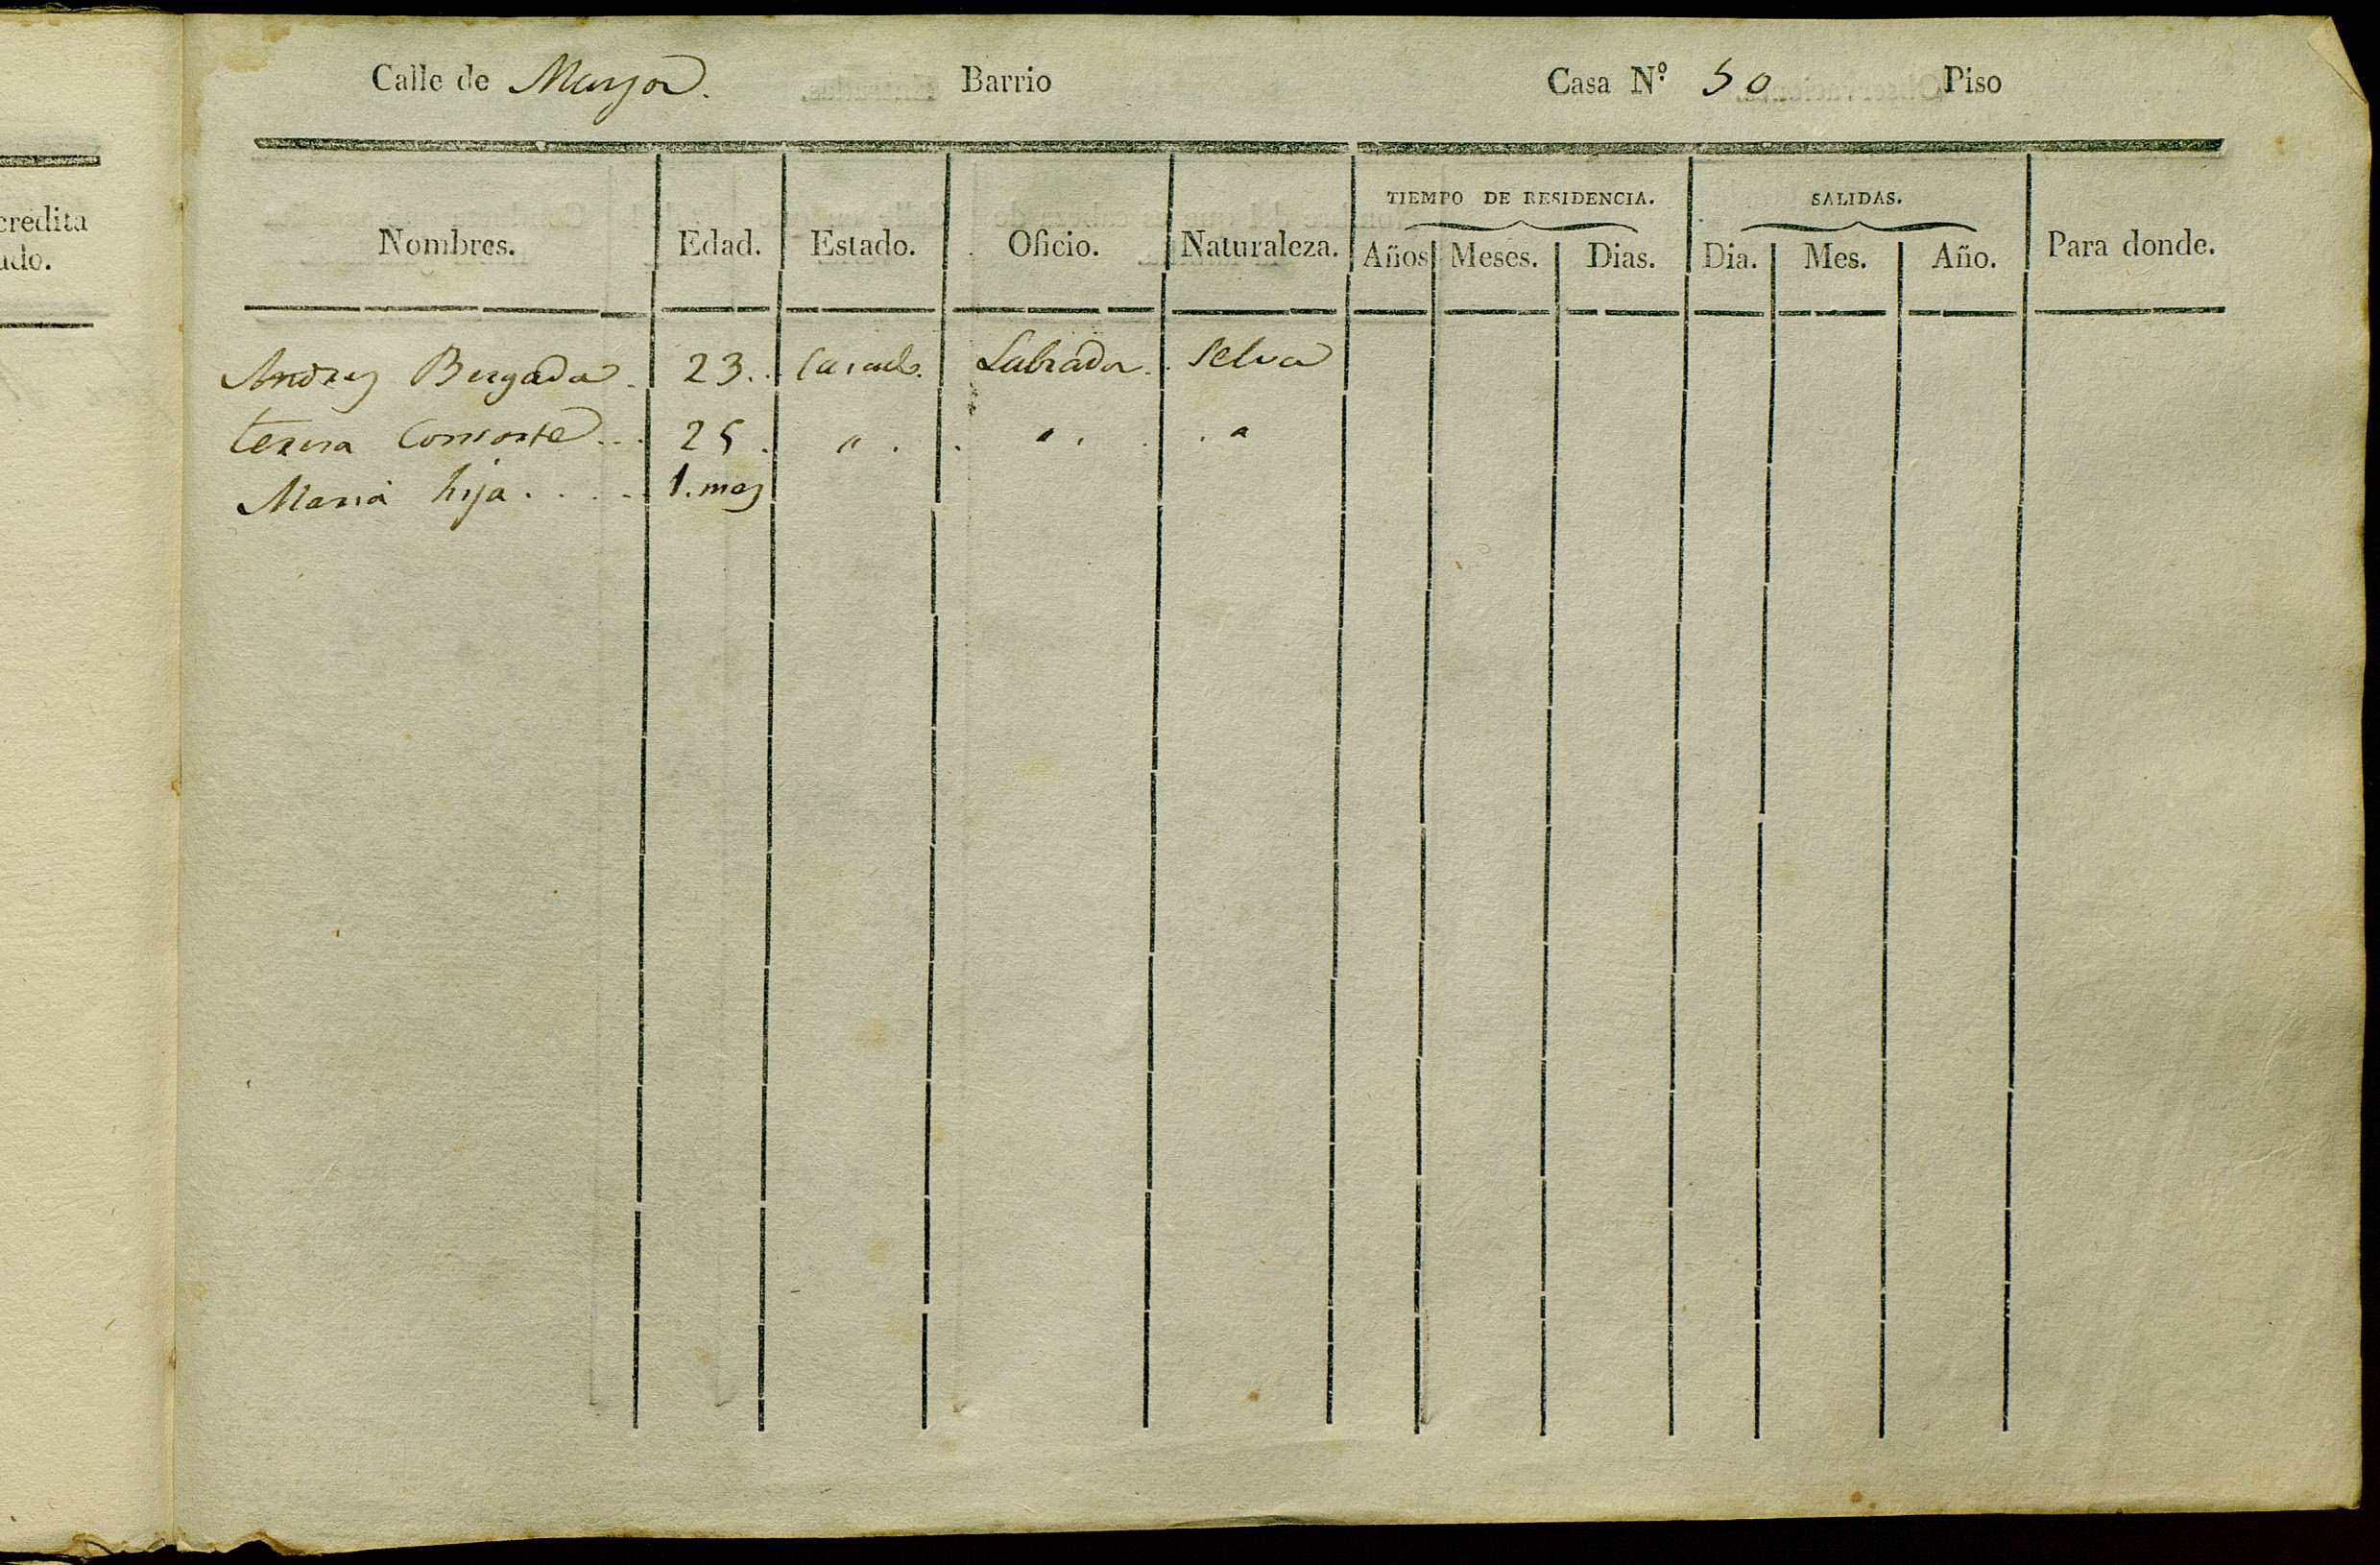 credita
ado.
Calle de Mayor. Barrio Casa N.º 50 Piso
TIEMPO DE RESIDENCIA. SALIDAS.
Nombres. Edad. Estado. Oficio. Naturaleza. Años Meses. Dias. Dia. Mes. Año. Para donde.
Andres Bergada. 23.. Casado. Labrador. Selva
teresa Consorte... 25. " . . " . . . "
Maria hija..... 1. mes